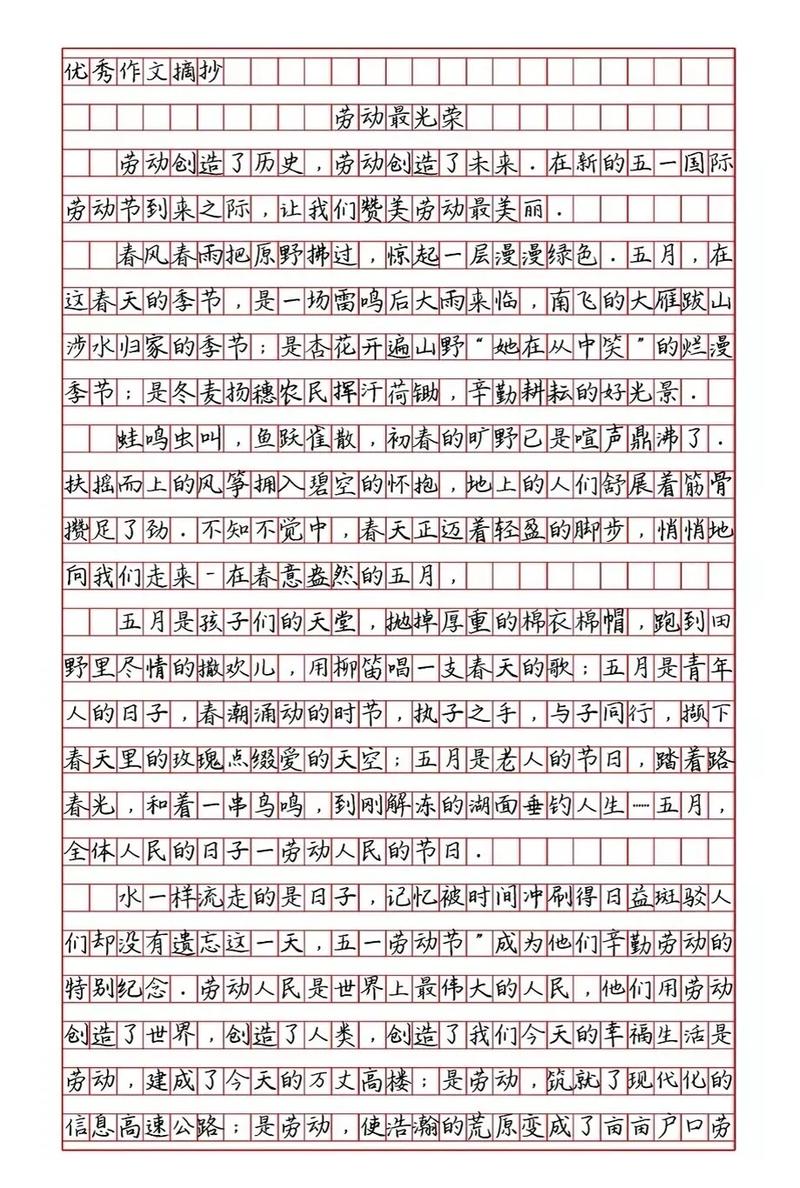 优秀作文摘抄
劳动最光荣
劳动创造了历史，劳动创造了未来．在新的五一国际
劳动节到来之际，让我们赞美劳动最美丽．
春风春雨把原野拂过，惊起一层漫漫绿色．五月，在
这春天的季节，是一场雷鸣后大雨来临，南飞的大雁跋山
涉水归家的季节；是杏花开遍山野“她在从中笑”的烂漫
季节；是冬麦扬穗农民挥汗荷锄，辛勤耕耘的好光景．
蛙鸣虫叫，鱼跃雀散，初春的旷野已是喧声鼎沸了．
扶摇而上的风筝拥入碧空的怀抱，地上的人们舒展着筋骨
攒足了劲．不知不觉中，春天正迈着轻盈的脚步，悄悄地
向我们走来－在春意盎然的五月，
五月是孩子们的天堂，抛掉厚重的棉衣棉帽，跑到田
野里尽情的撒欢儿，用柳笛唱一支春天的歌；五月是青年
人的日子，春潮涌动的时节，执子之手，与子同行，撷下
春天里的玫瑰点缀爱的天空；五月是老人的节日，踏着路
春光，和着一串鸟鸣，到刚解冻的湖面垂钓人生……五月，
全体人民的日子一劳动人民的节日．
水一样流走的是日子，记忆被时间冲刷得日益斑驳人
们却没有遗忘这一天，五一劳动节”成为他们辛勤劳动的
特别纪念．劳动人民是世界上最伟大的人民，他们用劳动
创造了世界，创造了人类，创造了我们今天的幸福生活是
劳动，建成了今天的万丈高楼；是劳动，筑就了现代化的
信息高速公路；是劳动，使浩瀚的荒原变成了亩亩户口劳